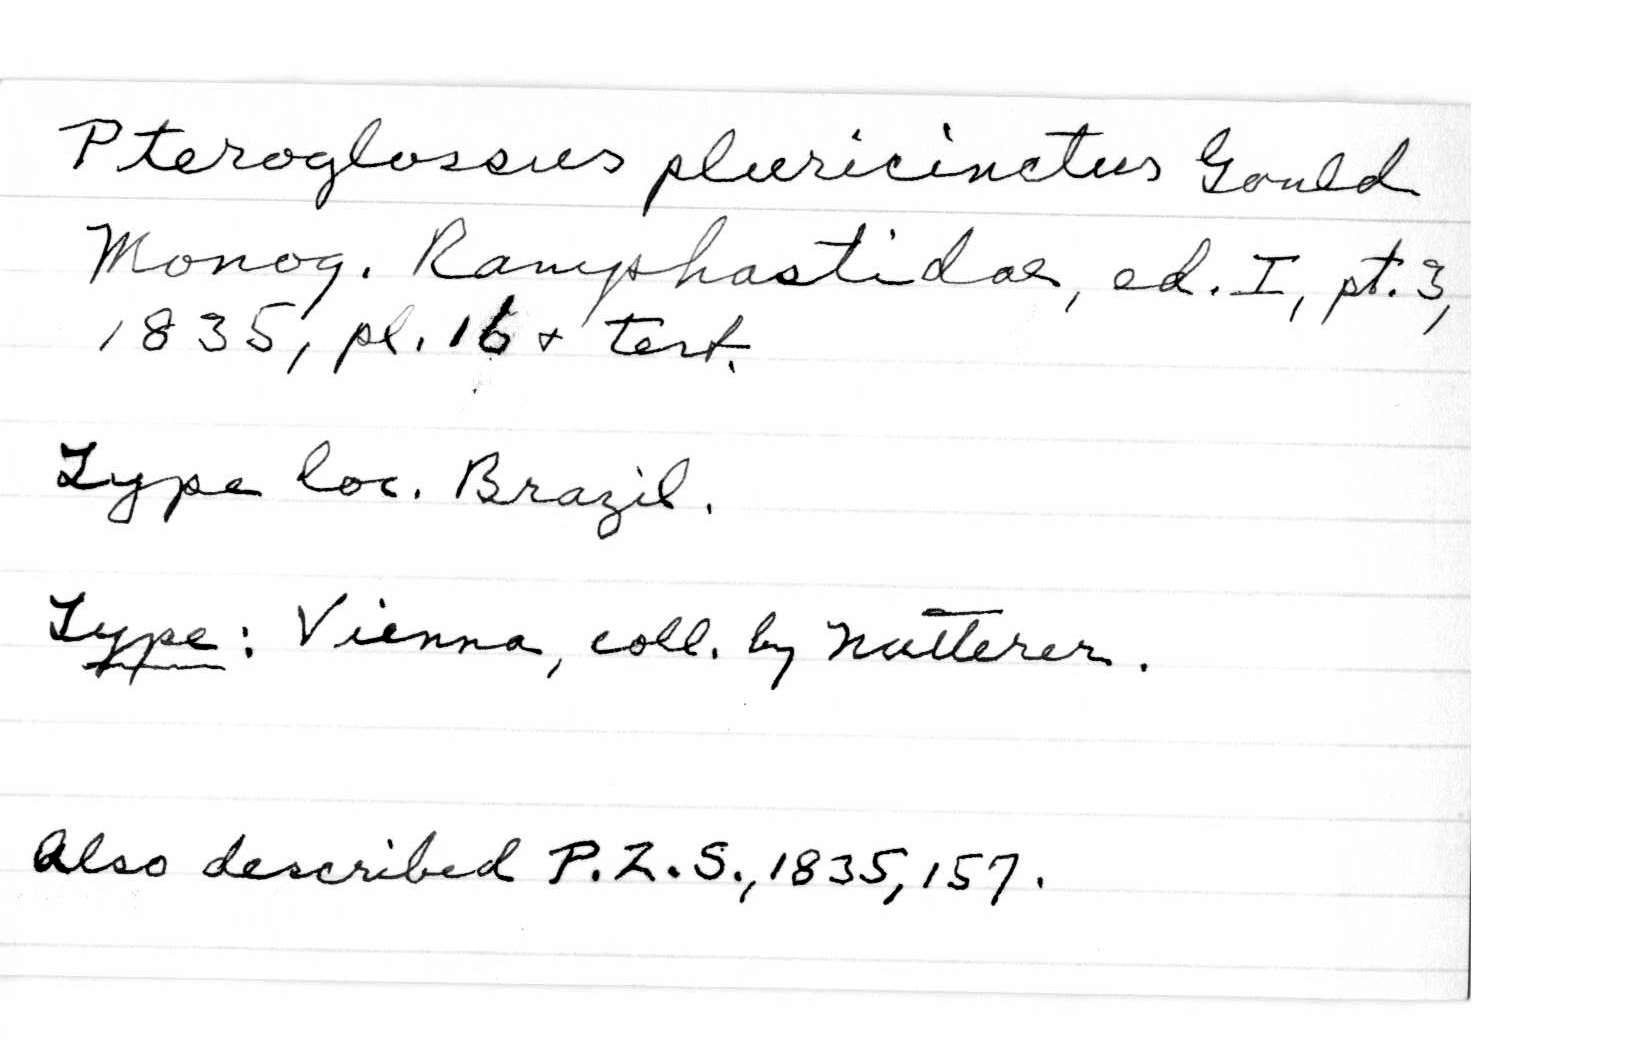 Pteroglossus pluricinctus Gould
Monog. Ramphastidae, ed. I, pt. 3,
1835, pl. 16 + text.
Type loc. Brazil.
Type: Vienna, coll. by Natterer.
Also described P.Z.S., 1835, 157.